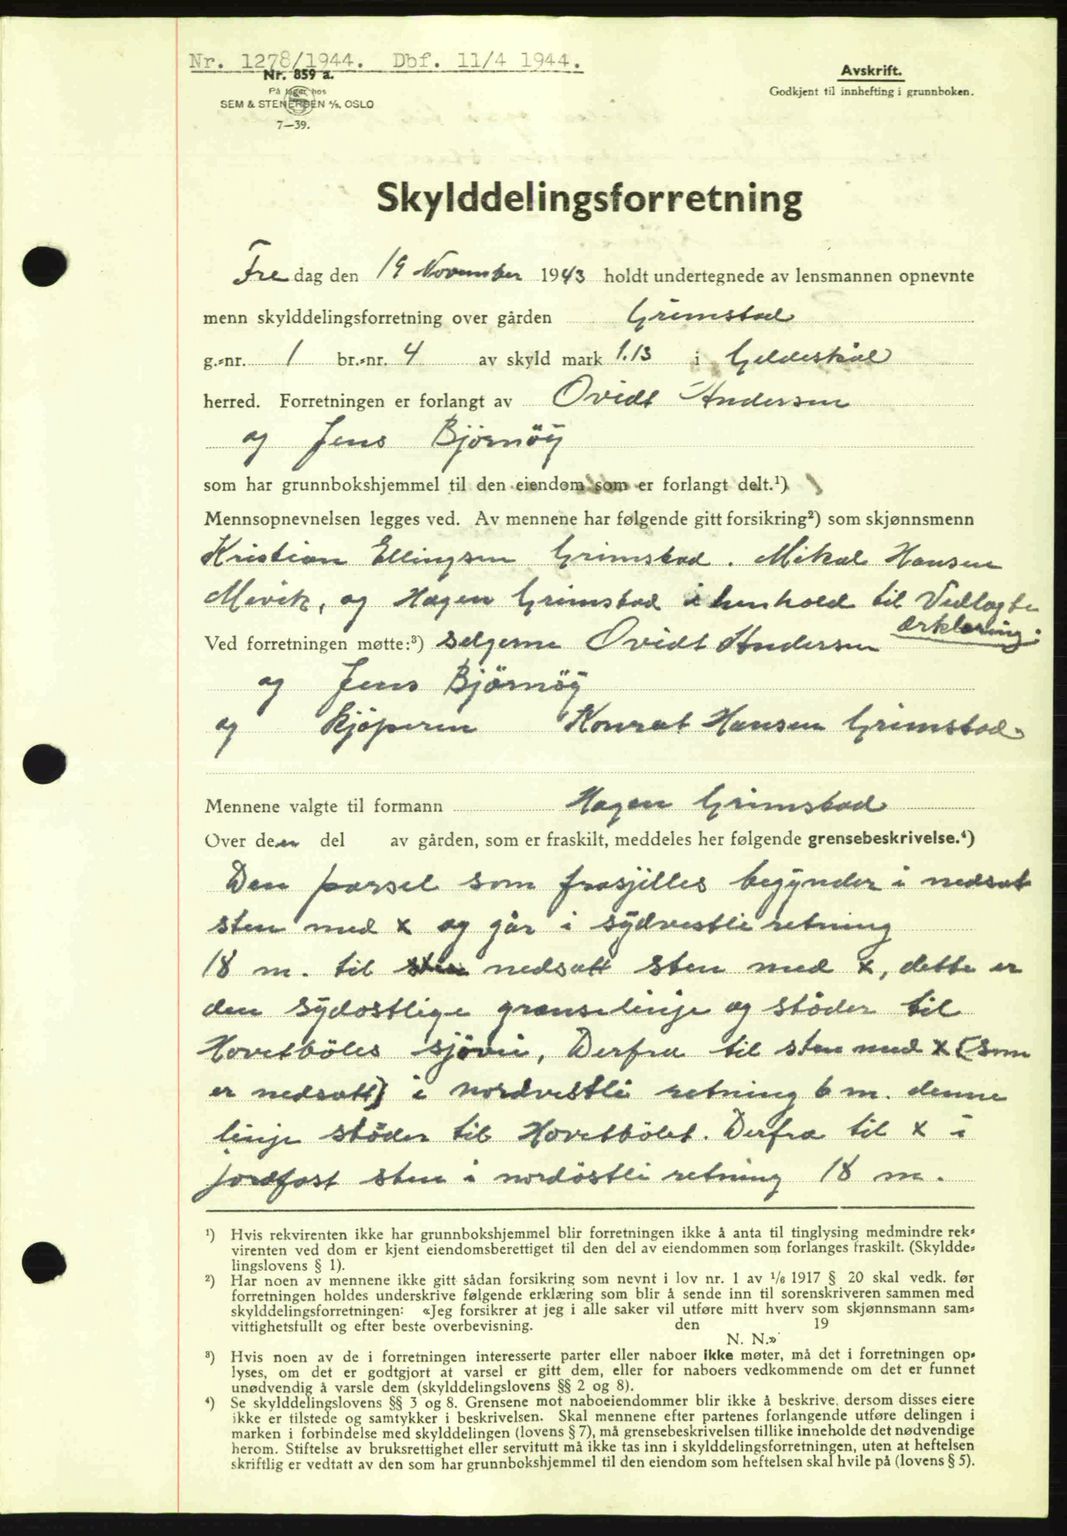 Nr. 1278/1944. Dbf. 11/4 1944.
Nr. 859 a.
På lager hos
SEM & STENERSEN A/S, OSLO
7—39.
Avskrift.
Godkjent til innhefting i grunnboken.
Skylddelingsforretning
Fre dag den 19 November 1943 holdt undertegnede av lensmannen opnevnte
menn skylddelingsforretning over gården Grimstad
g.-nr. 1 br.-nr. 4 av skyld mark 1.13 i Gildeskål
herred. Forretningen er forlangt av Ovidt Andersen
og Jens Bjørnøy
som har grunnbokshjemmel til den eiendom som er forlangt delt.¹)
Mennsopnevnelsen legges ved. Av mennene har følgende gitt forsikring²) som skjønnsmenn
Kristian Ellingsen Grimstad. Mikal Hansen
Mevik, og Hagen Grimstad i henhold til Vedlagte
ærklæring.
Ved forretningen møtte:³) selgerne Ovidt Andersen
og Jens Bjørnøy
og kjøperen Konrat Hansen Grimstad
Mennene valgte til formann Hagen Grimstad
Over den del av gården, som er fraskilt, meddeles her følgende grensebeskrivelse.⁴)
Den parsel som frasjilles begynder i nedsat
sten med x og går i sydvestli retning
18 m. til nedsatt sten med x, dette er
den sydostlige grænselinje og støder til
Hovetbölets sjövei, Derfra til sten med x (som
er nedsatt) i nordvestli retning 6 m. denne
linje støder til Hovetbölet. Derfra til x i
jordfast sten i nordöstli retning 18 m.
¹) Hvis rekvirenten ikke har grunnbokshjemmel blir forretningen ikke å anta til tinglysing medmindre rek-
virenten ved dom er kjent eiendomsberettiget til den del av eiendommen som forlanges fraskilt. (Skyldde-
lingslovens § 1).
²) Har noen av mennene ikke gitt sådan forsikring som nevnt i lov nr. 1 av 1/6 1917 § 20 skal vedk. før
forretningen holdes underskrive følgende erklæring som blir å sende inn til sorenskriveren sammen med
skylddelingsforretningen: «Jeg forsikrer at jeg i alle saker vil utføre mitt hverv som skjønnsmann sam-
vittighetsfullt og efter beste overbevisning. den 19
N. N.»
³) Hvis noen av de i forretningen interesserte parter eller naboer ikke møter, må det i forretningen op-
lyses, om det er godtgjort at varsel er gitt dem, eller for naboers vedkommende om det er funnet
unødvendig å varsle dem (skylddelingslovens §§ 2 og 8).
⁴) Se skylddelingslovens §§ 3 og 8. Grensene mot naboeiendommer blir ikke å beskrive, dersom disses eiere
ikke er tilstede og samtykker i beskrivelsen. Skal mennene efter partenes forlangende utføre delingen i
marken i forbindelse med skylddelingen (lovens § 7), må grensebeskrivelsen tillike inneholde det nødvendige
herom. Stiftelse av bruksrettighet eller servitutt må ikke tas inn i skylddelingsforretningen, uten at heftelsen
skriftlig er vedtatt av den som har grunnbokshjemmel til den eiendom som heftelsen skal hvile på (lovens § 5).